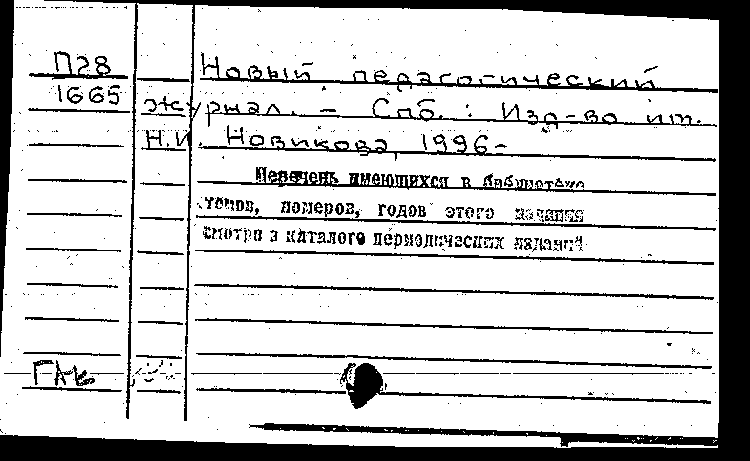 П28
1665
Новый педагогический
журнал. – Спб. : Изд-во им.
Н.И. Новикова, 1996–
Перечень имеющихся в библиотеке
томов, номеров, годов этого издания
смотри в каталоге периодических изданий